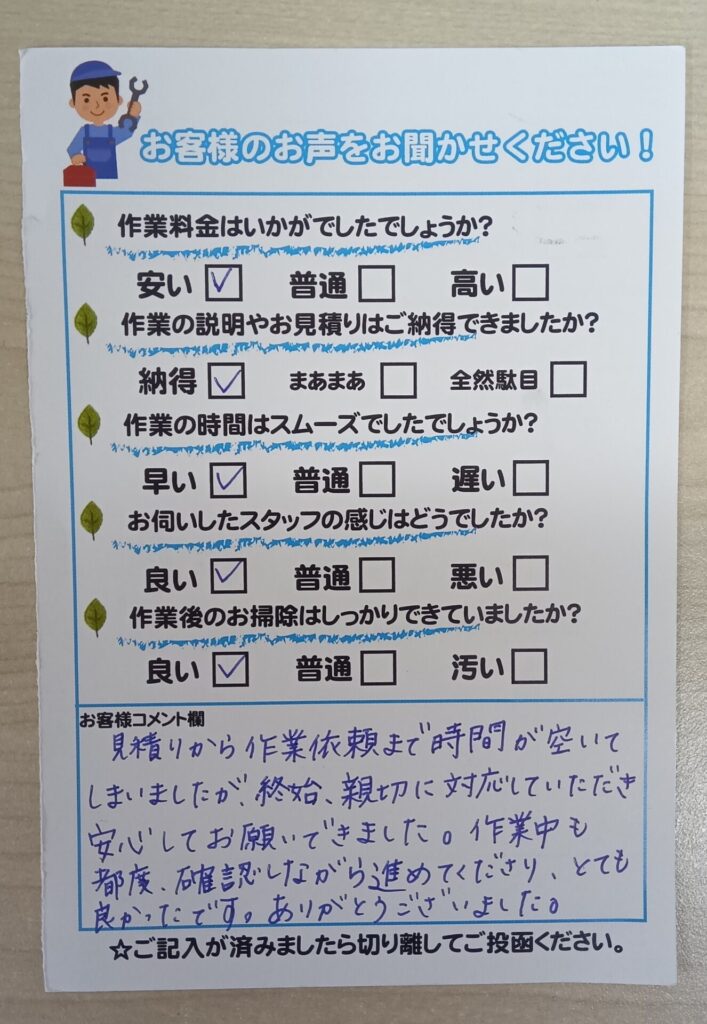 お客様のお声をお聞かせください！
作業料金はいかがでしたでしょうか？
安い ☑ 普通 □ 高い □
作業の説明やお見積りはご納得できましたか？
納得 ☑ まあまあ □ 全然駄目 □
作業の時間はスムーズでしたでしょうか？
早い ☑ 普通 □ 遅い □
お伺いしたスタッフの感じはどうでしたか？
良い ☑ 普通 □ 悪い □
作業後のお掃除はしっかりできていましたか？
良い ☑ 普通 □ 汚い □
お客様コメント欄
見積りから作業依頼まで時間が空いて
しまいましたが、終始、親切に対応していただき
安心してお願いできました。作業中も
都度、確認しながら進めてくださり、とても
良かったです。ありがとうございました。
☆ご記入が済みましたら切り離してご投函ください。